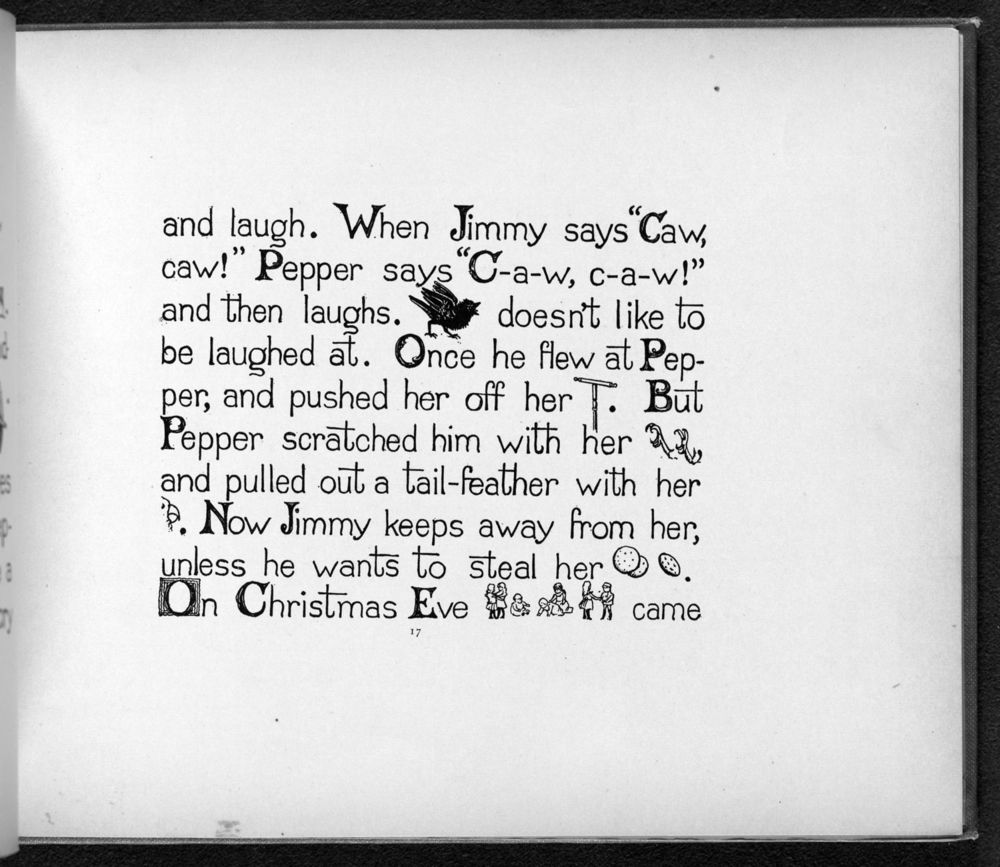 and laugh. When Jimmy says "Caw,
caw!" Pepper says "C-a-w, c-a-w!"
and then laughs. doesn't like to
be laughed at. Once he flew at Pep-
per, and pushed her off her . But
Pepper scratched him with her
and pulled out a tail-feather with her
. Now Jimmy keeps away from her,
unless he wants to steal her .
On Christmas Eve came
17